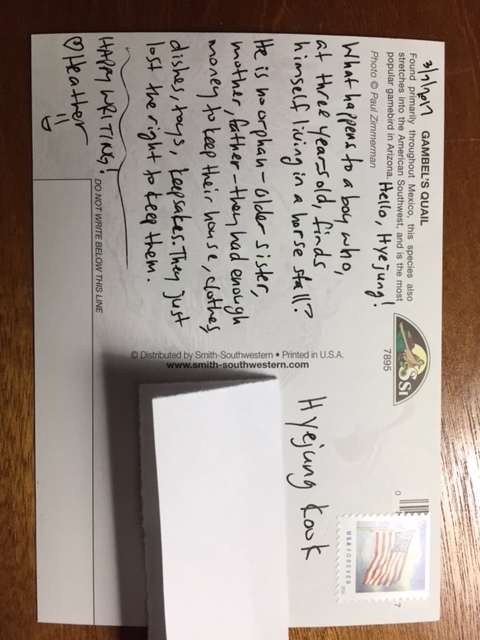 3/1/2017
GAMBEL'S QUAIL
Found primarily throughout Mexico, this species also
stretches into the American Southwest, and is the most
popular gamebird in Arizona.
Photo © Paul Zimmerman
Hello, Hyejung!
What happens to a boy who,
at three years old, finds
himself living in a horse stall?
He is no orphan – older sister,
mother, father – they had enough
money to keep their house, clothes,
dishes, toys, keepsakes. They just
lost the right to keep them.
HAPPY WRITING!
♡ Heather
DO NOT WRITE BELOW THIS LINE
SSi
7895
© Distributed by Smith-Southwestern • Printed in U.S.A.
www.smith-southwestern.com
0
7
USA FOREVER
Hyejung Kook